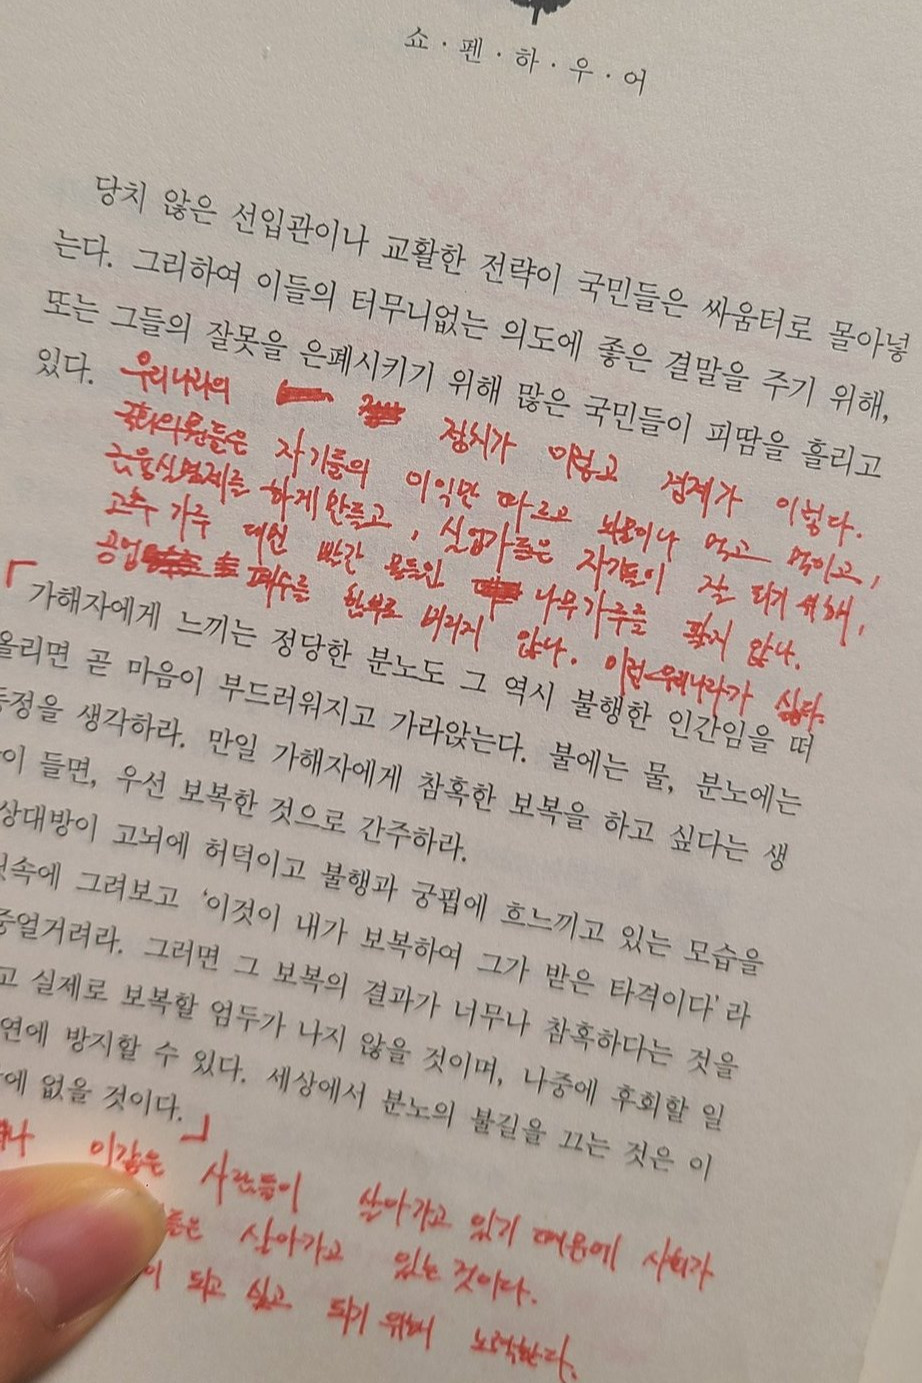 쇼·펜·하·우·어
당치 않은 선입관이나 교활한 전략이 국민들은 싸움터로 몰아넣
는다. 그리하여 이들의 터무니없는 의도에 좋은 결말을 주기 위해,
또는 그들의 잘못을 은폐시키기 위해 많은 국민들이 피땀을 흘리고
있다.
우리나라의 정치가 이렇고 경제가 이렇다.
국회의원들은 자기들의 이익만 따르고 뇌물이나 먹고 먹이고,
금융실명제를 하게 만들고, 실업가들은 자기들이 잘 되기 위해,
고추 가루 대신 빨간 물들인 나무가루를 팔지 않나.
공업 폐수를 함부로 버리지 않나. 이런 우리나라가 싫다.
「가해자에게 느끼는 정당한 분노도 그 역시 불행한 인간임을 떠
올리면 곧 마음이 부드러워지고 가라앉는다. 불에는 물, 분노에는
동정을 생각하라. 만일 가해자에게 참혹한 보복을 하고 싶다는 생
이 들면, 우선 보복한 것으로 간주하라.
상대방이 고뇌에 허덕이고 불행과 궁핍에 흐느끼고 있는 모습을
속에 그려보고 ‘이것이 내가 보복하여 그가 받은 타격이다’라
중얼거려라. 그러면 그 보복의 결과가 너무나 참혹하다는 것을
고 실제로 보복할 엄두가 나지 않을 것이며, 나중에 후회할 일
연에 방지할 수 있다. 세상에서 분노의 불길을 끄는 것은 이
에 없을 것이다.」
이같은 사람들이 살아가고 있기 때문에 사회가
들은 살아가고 있는 것이다.
이 되고 싶고 되기 위해 노력한다.